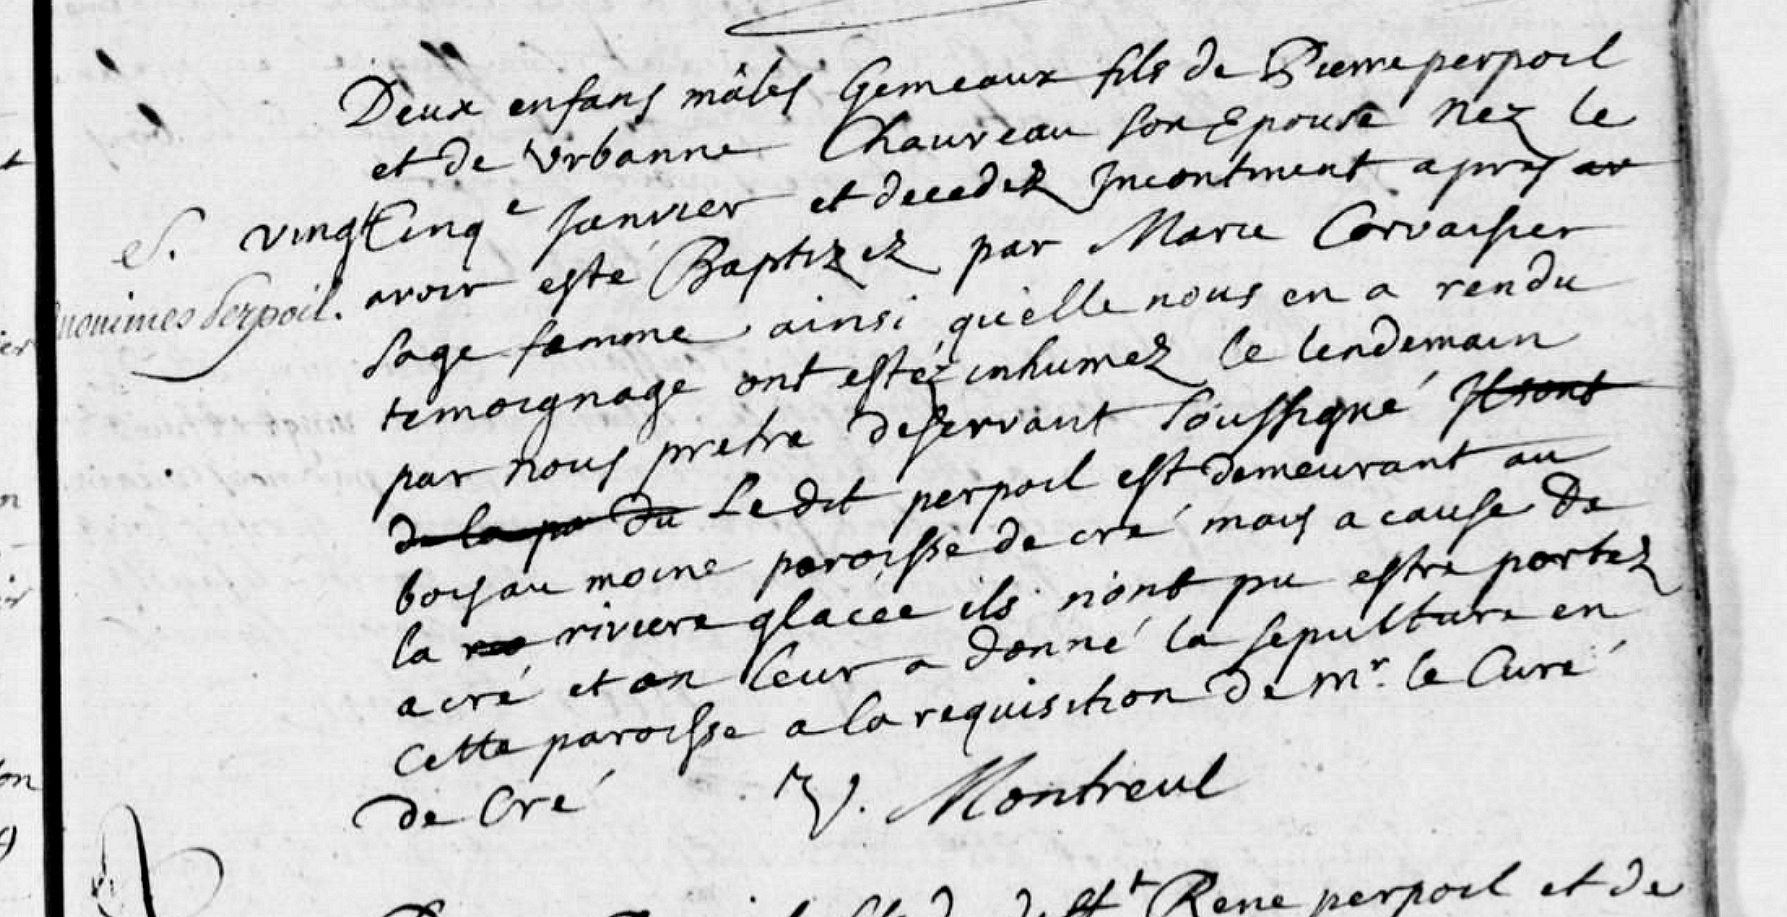 Deux enfans mâles Gemeaux fils de Pierre perpoil
et de Urbanne Chauveau son Epouse nez le
S. vingt Cinqe Janvier et decedez Incontinent apres av
avoir esté Baptizez par Marie Corvaisier
nonimes Perpoil.
sage femme ainsi qu'elle nous en a rendu
temoignage ont estéz inhumez le lendemain
par nous pretre deservant soussigné Ils sont
de la pa du Le dit perpoil est demeurant au
bois au moine paroisse de cré mais a cause de
la riviere glacée ils n'ont pu estre portez
a cré et on leur a donné la sepulture en
cette paroisse a la requisition de Mr. le Curé
de Cré Montreul
Rene perpoil et de